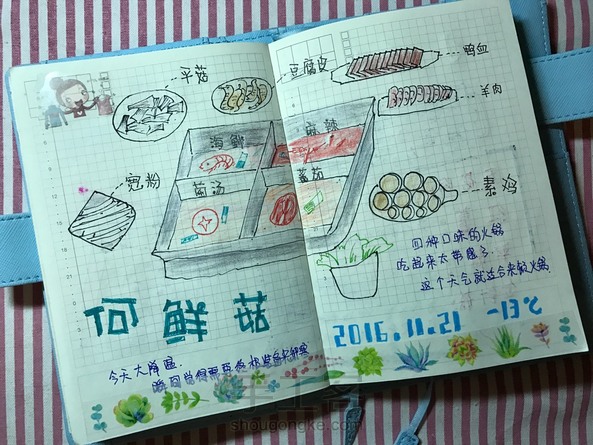 平菇
豆腐皮
鸭血
羊肉
海鲜
麻辣
宽粉
菌汤
番茄
素鸡
四种口味的火锅
吃起来太带感了.
这个天气就适合来顿火锅
何鲜菇
2016.11.21 -13℃
今天大降温.
手工客
shoudongke.com